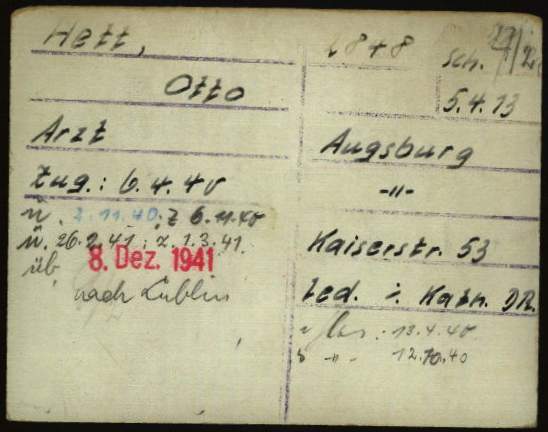 Hett, 1848 sch.
Otto 5.4.13
Arzt Augsburg
Zug.: 6.4.40 -"-
ü. 2.11.40. z 6.11.40
ü. 26.2.41; z. 1.3.41. Kaiserstr. 53
üb. 8. Dez. 1941
nach Lublin led. i. Kath. DR.
13.4.40
-"- 12.10.40